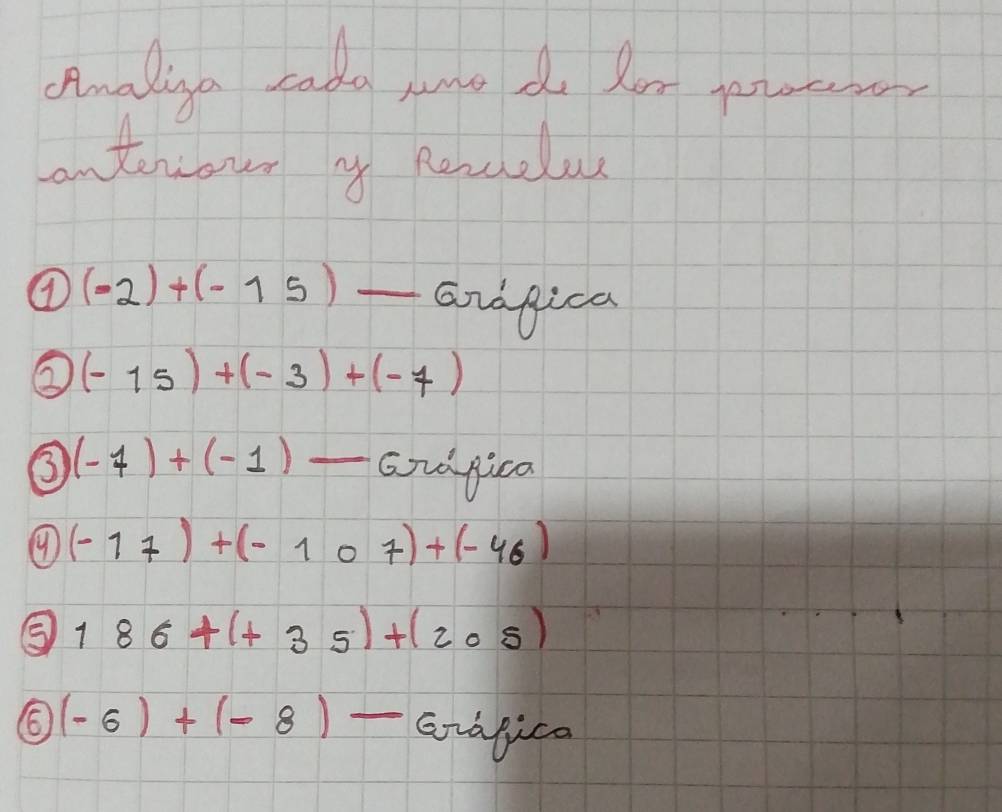 Analiza cada uno de los procesos
anteriores y Resuelve
① (-2)+(-15) — Gráfica
② (-15)+(-3)+(-7)
③ (-7)+(-1) — Gráfica
④ (-17)+(-107)+(-46)
⑤ 186+(+35)+(205)
⑥ (-6)+(-8) — Gráfica